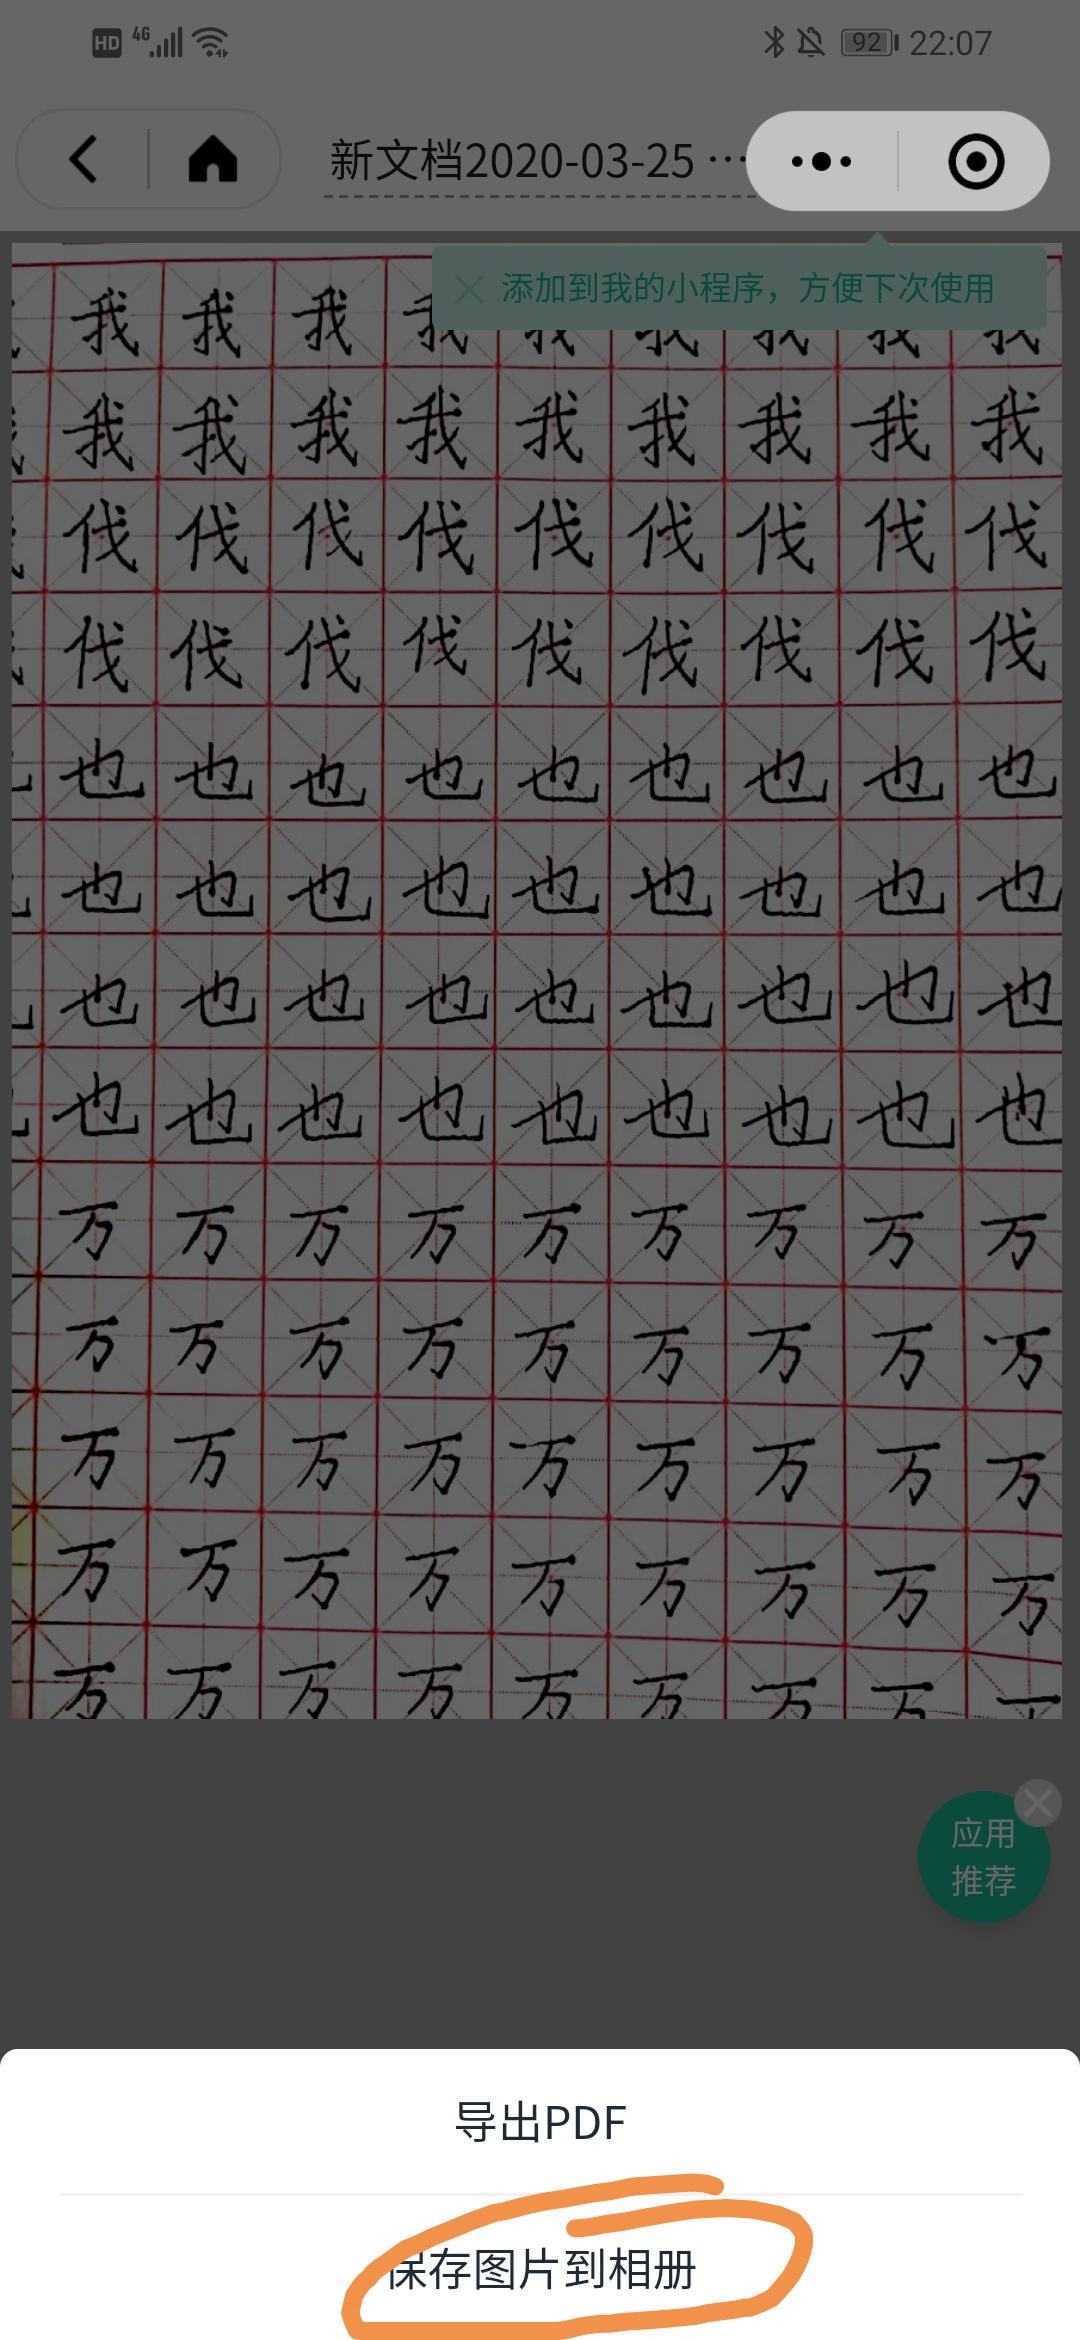 HD 4G 92 22:07
新文档2020-03-25 ···
添加到我的小程序，方便下次使用
我 我 我 我 我 我 我 我 我
我 我 我 我 我 我 我 我 我
伐 伐 伐 伐 伐 伐 伐 伐 伐
伐 伐 伐 伐 伐 伐 伐 伐 伐
也 也 也 也 也 也 也 也 也
也 也 也 也 也 也 也 也 也
也 也 也 也 也 也 也 也 也
也 也 也 也 也 也 也 也 也
万 万 万 万 万 万 万 万 万
万 万 万 万 万 万 万 万 万
万 万 万 万 万 万 万 万 万
万 万 万 万 万 万 万 万 万
万 万 万 万 万 万 万 万
应用
推荐
导出PDF
保存图片到相册